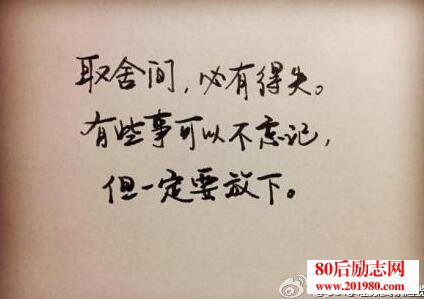 取舍间，必有得失。
有些事可以不忘记，
但一定要放下。
80后励志网
www.201980.com